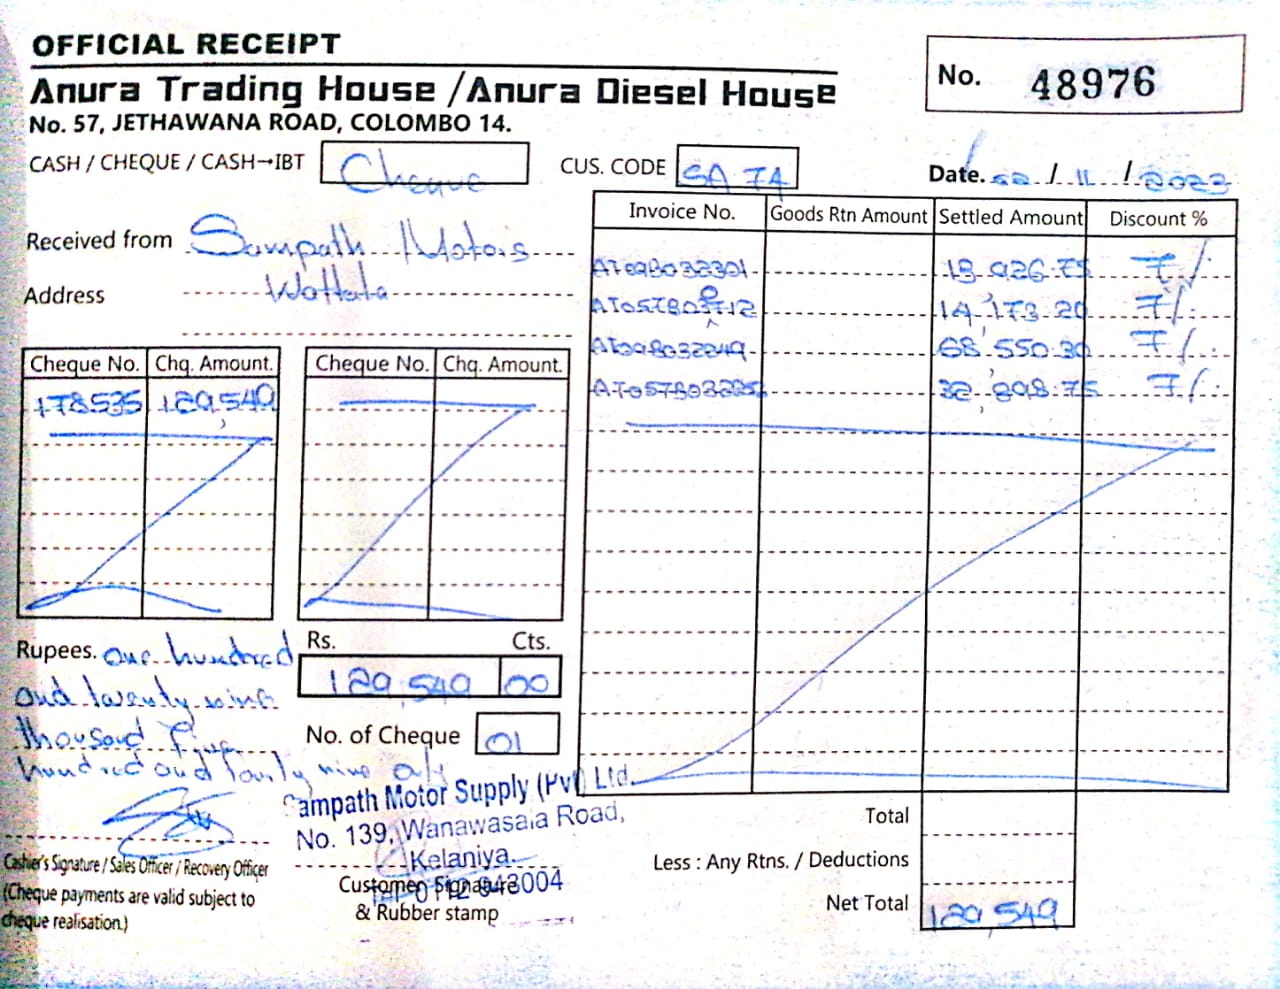 OFFICIAL RECEIPT
Anura Trading House / Anura Diesel House
No. 57, JETHAWANA ROAD, COLOMBO 14.
No. 48976
CASH / CHEQUE / CASH→IBT Cheque
CUS. CODE SA 74
Date. 22 / 11 / 2023
Received from Sampath Motors
Address Wattala
Invoice No. Goods Rtn Amount Settled Amount Discount %
13 926.75 7%
14,173.20 7%
68,550.30 7%
32,898.75 7%
Cheque No. Chq. Amount. Cheque No. Chq. Amount.
178535 129,549
Rupees. one hundred
and twenty nine
thousand five
hundred and fourty nine only
Rs. Cts.
129,549 00
No. of Cheque 01
Sampath Motor Supply (Pvt) Ltd.
No. 139, Wanawasala Road,
Kelaniya.
Cashier's Signature / Sales Officer / Recovery Officer
(Cheque payments are valid subject to
cheque realisation.)
Customer Signature
& Rubber stamp
Total
Less : Any Rtns. / Deductions
Net Total 129,549